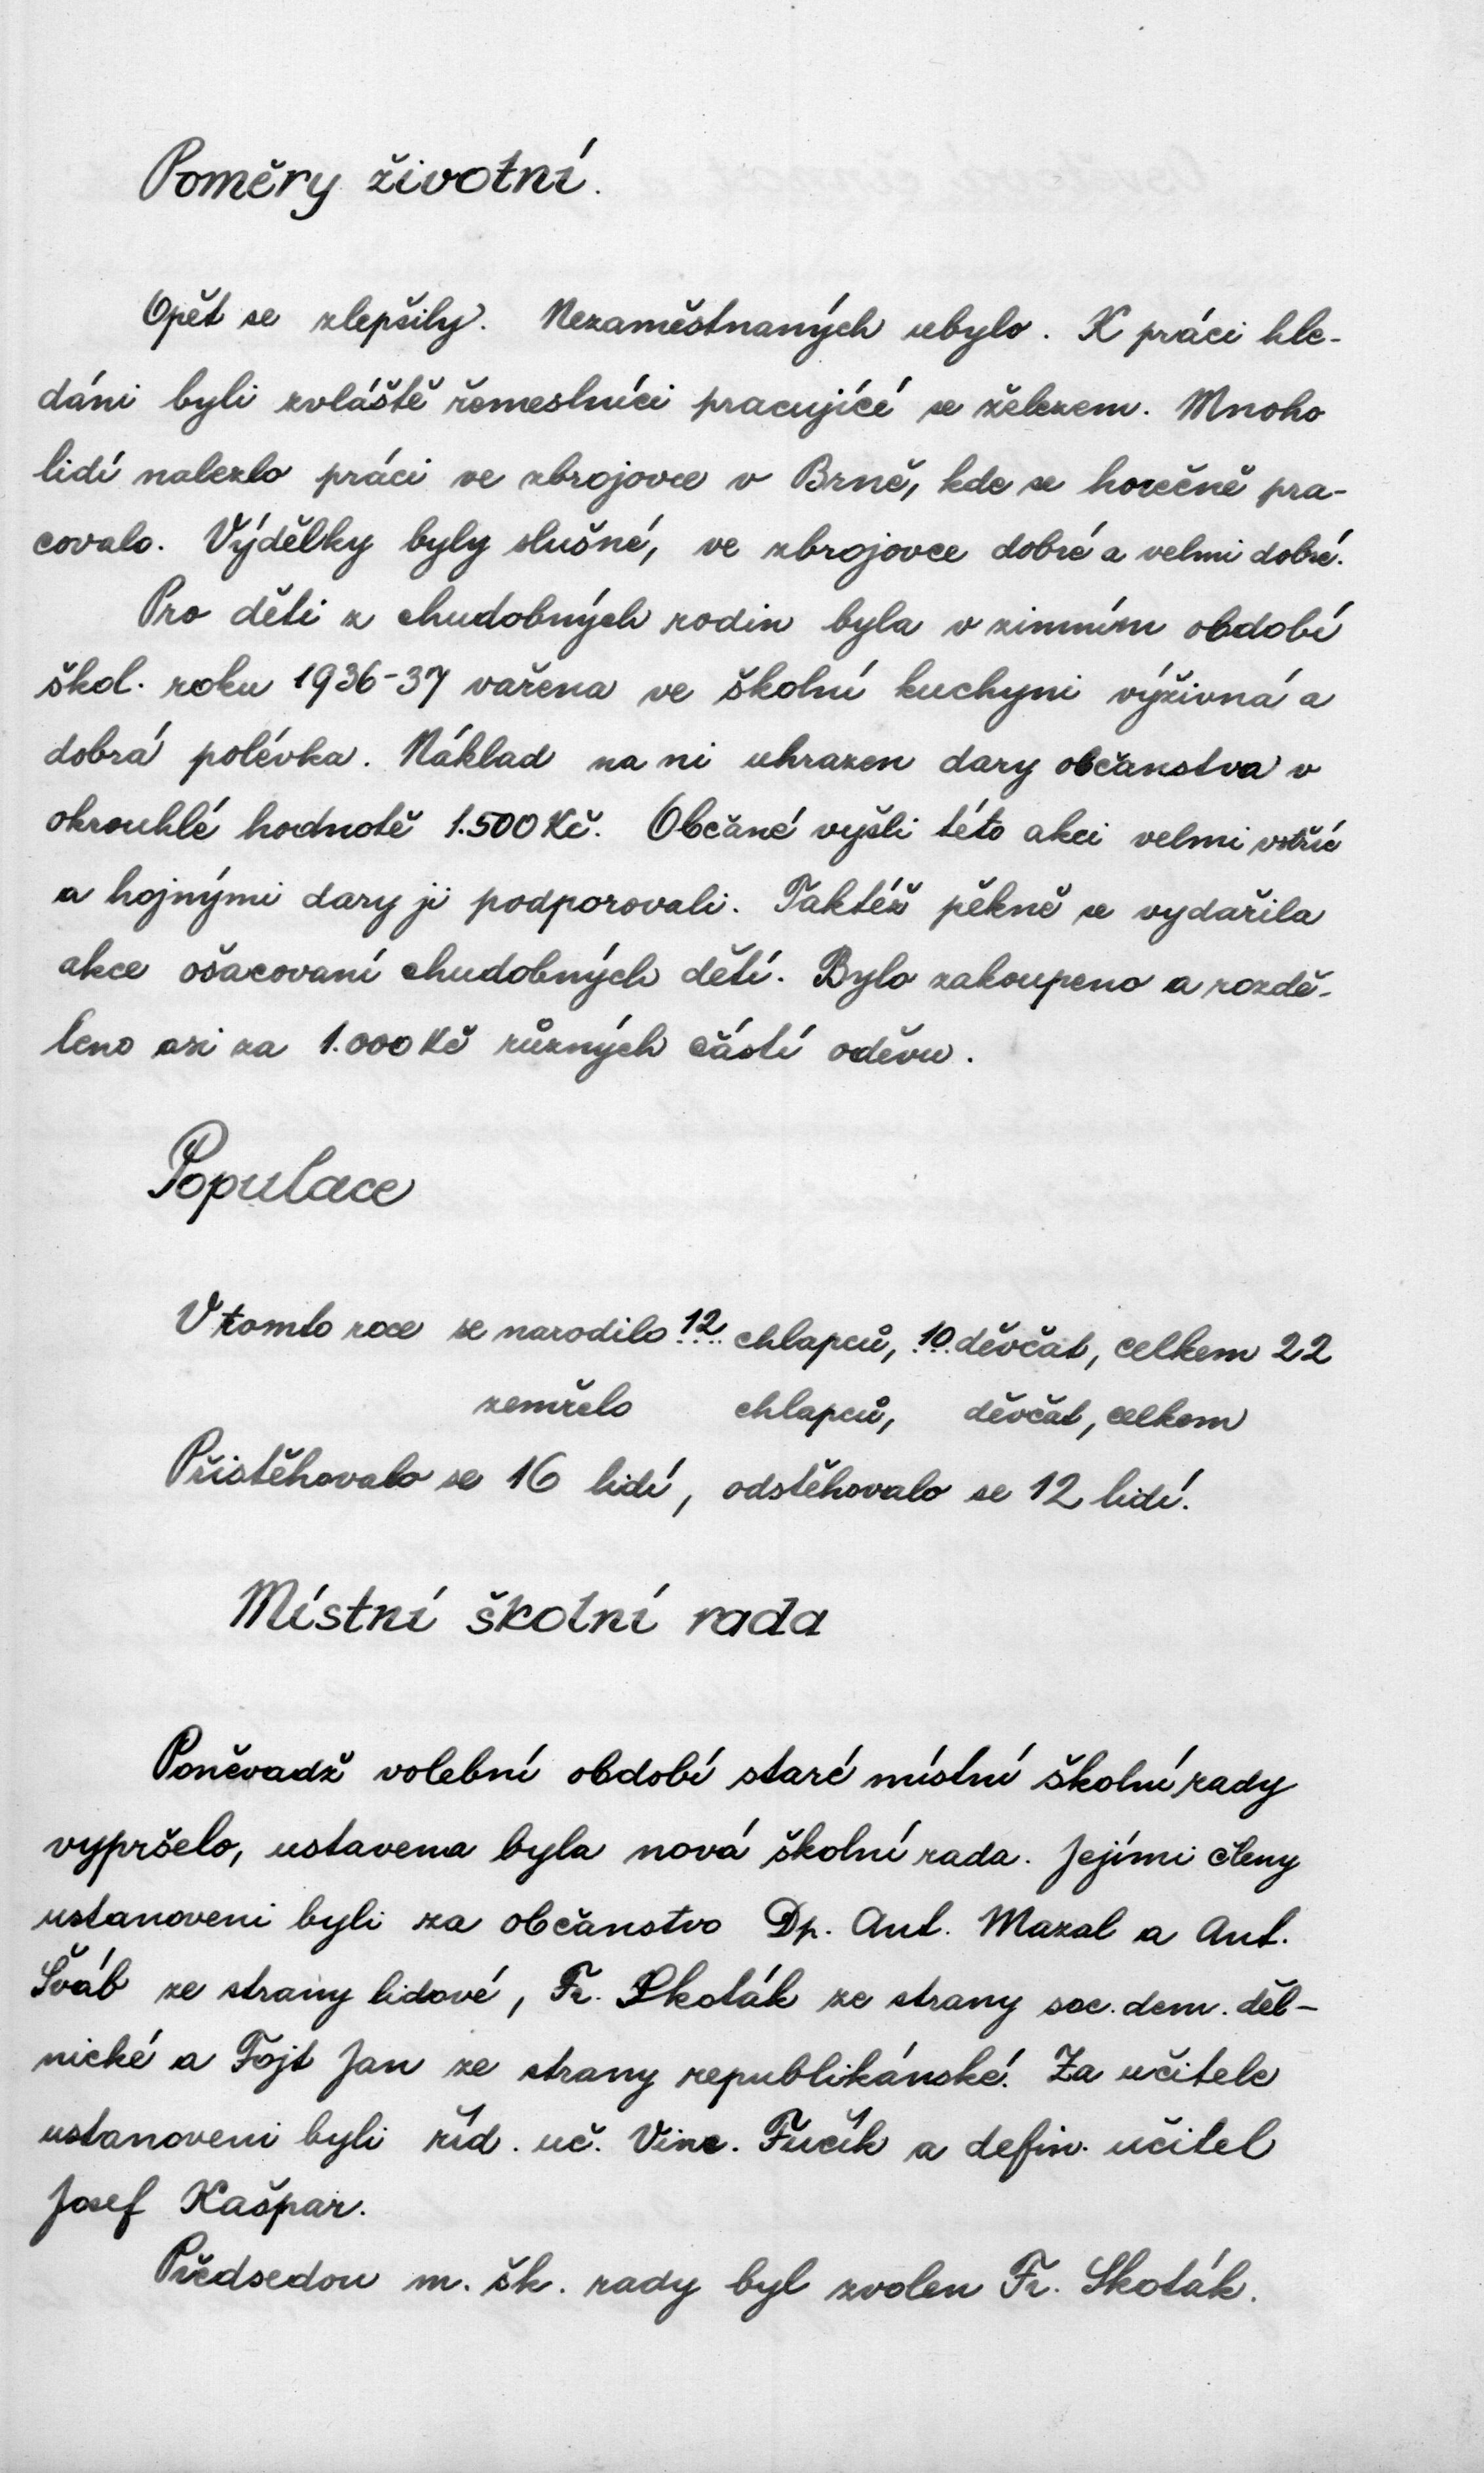 Poměry životní.
Opět se zlepšily. Nezaměstnaných ubylo. K práci hle-
dáni byli zvláště řemeslníci pracující se železem. Mnoho
lidí nalezlo práci ve zbrojovce v Brně, kde se horečně pra-
covalo. Výdělky byly slušné, ve zbrojovce dobré a velmi dobré.
Pro děti z chudobných rodin byla v zimním období
škol. roku 1936-37 vařena ve školní kuchyni výživná a
dobrá polévka. Náklad na ni uhrazen dary občanstva v
okrouhlé hodnotě 1.500 Kč. Občané vyšli této akci velmi vstříc
a hojnými dary ji podporovali. Taktéž pěkně se vydařila
akce ošacovaní chudobných dětí. Bylo zakoupeno a rozdě-
leno asi za 1.000 Kč různých částí oděvu.
Populace
V tomto roce se narodilo 12 chlapců, 10 děvčat, celkem 22
zemřelo chlapců, děvčat, celkem
Přistěhovalo se 16 lidí, odstěhovalo se 12 lidí.
Místní školní rada
Poněvadž volební období staré místní školní rady
vypršelo, ustavena byla nová školní rada. Jejími členy
ustanoveni byli za občanstvo Dp. Ant. Mazal a Ant.
Šváb ze strany lidové, Fr. Skoták ze strany soc. dem. děl-
nické a Fojt Jan ze strany republikánské. Za učitele
ustanoveni byli říd. uč. Vinc. Fučík a defin. učitel
Josef Kašpar.
Předsedou m. šk. rady byl zvolen Fr. Skoták.